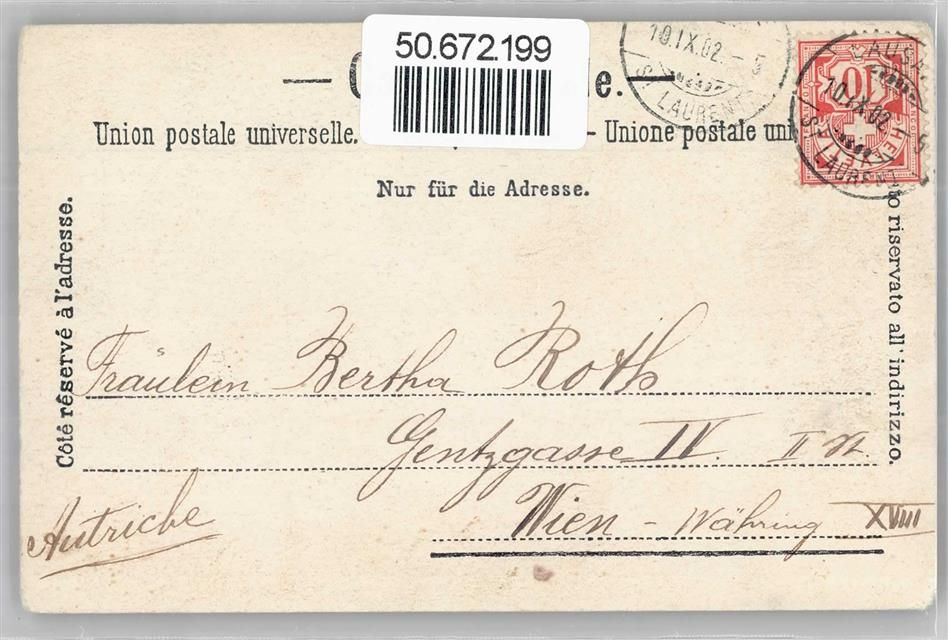 50.672.199
10.IX.02. – 5
ST LAURENT
LAUSA
10.IX.02.
ST LAURENT
10
HELVETIA
Union postale universelle. – Unione postale uni
Nur für die Adresse.
Côté réservé à l'adresse.
to riservato all' indirizzo.
Fräulein Bertha Roth
Gentzgasse IV. II St.
Wien – Währing XVIII
Autriche